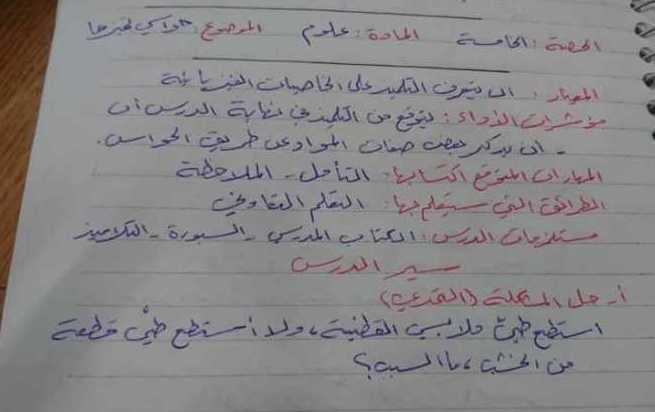 الحصة : الخامسة المادة : علوم الموضوع : حواسي تخبرها
المعيار : ان يتعرف التلميذ على الخاصيات الفيزيائية
مؤشرات الأداء : يتوقع من التلميذ في نهاية الدرس أن
- ان يذكر بعض صفات المواد عن طريق الحواس.
المهارات المتوقع اكتسابها : التأمل - الملاحظة
الطرائق التي سيتعلم بها : التعلم التعاوني
مستلزمات الدرس : الكتاب المدرسي - السبورة - التلاميذ
سير الدرس
أ- حل المشكلة (التحدي)
استطيع طيّ ملابسي القطنية ، ولا أستطيع طيّ قطعة
من الخشب ، ما السبب ؟